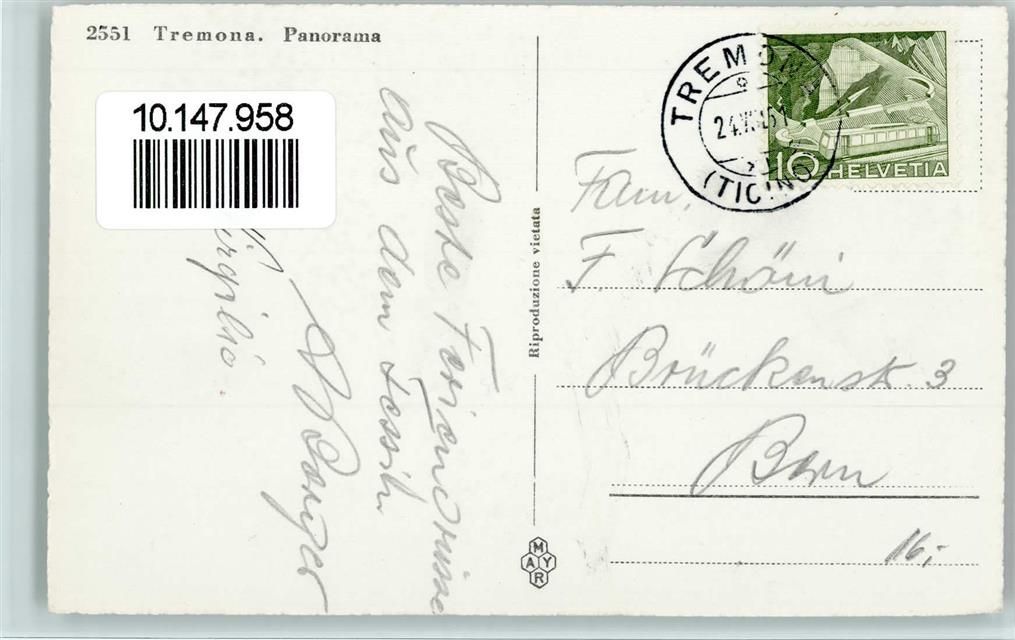 2551 Tremona. Panorama
10.147.958
Beste Feriengrüsse
aus dem Tessin
Riproduzione vietata
MAYR
TREMONA
(TICINO)
10 HELVETIA
Fam.
F. Schöni
Brückenstr. 3
Bern
16,-